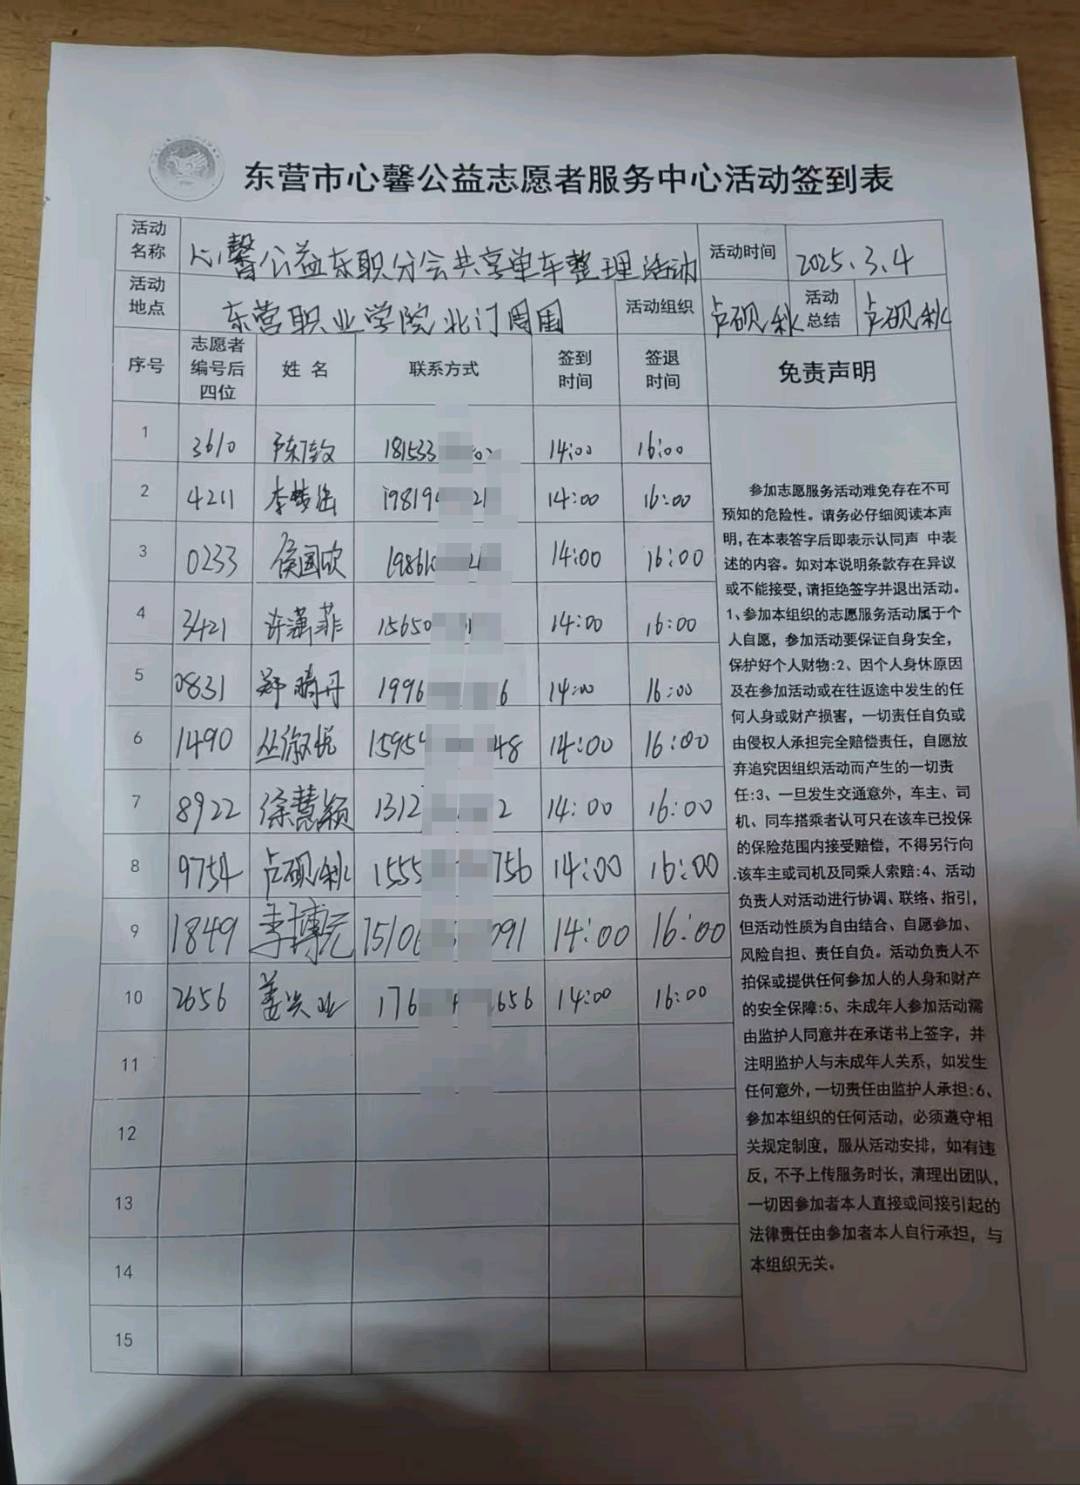 东营市心馨公益志愿者服务中心活动签到表
活动名称 心馨公益东职分会共享单车整理活动 活动时间 2025.3.4
活动地点 东营职业学院北门周围 活动组织 卢砚秋 活动总结 卢砚秋
序号 志愿者编号后四位 姓名 联系方式 签到时间 签退时间 免责声明
1 3610 181533 14:00 16:00
2 4211 李梦瑶 19819 21 14:00 16:00
3 0233 侯国欣 198610 14:00 16:00
4 3421 许潇菲 15650 14:00 16:00
5 0831 郑晴丹 1996 6 14:00 16:00
6 1490 丛淑悦 1595 48 14:00 16:00
7 8922 徐慧颖 1312 2 14:00 16:00
8 9754 卢砚秋 1555 756 14:00 16:00
9 1849 李博元 15106 091 14:00 16:00
10 2656 姜兴业 176 656 14:00 16:00
11
12
13
14
15
参加志愿服务活动难免存在不可
预知的危险性。请务必仔细阅读本声
明，在本表签字后即表示认同声 中表
述的内容。如对本说明条款存在异议
或不能接受，请拒绝签字并退出活动。
1、参加本组织的志愿服务活动属于个
人自愿，参加活动要保证自身安全，
保护好个人财物:2、因个人身休原因
及在参加活动或在往返途中发生的任
何人身或财产损害，一切责任自负或
由侵权人承担完全赔偿责任，自愿放
弃追究因组织活动而产生的一切责
任:3、一旦发生交通意外，车主、司
机、同车搭乘者认可只在该车已投保
的保险范围内接受赔偿，不得另行向
该车主或司机及同乘人索赔:4、活动
负责人对活动进行协调、联络、指引，
但活动性质为自由结合、自愿参加、
风险自担、责任自负。活动负责人不
拍保或提供任何参加人的人身和财产
的安全保障:5、未成年人参加活动需
由监护人同意并在承诺书上签字，并
注明监护人与未成年人关系，如发生
任何意外，一切责任由监护人承担:6、
参加本组织的任何活动，必须遵守相
关规定制度，服从活动安排，如有违
反，不予上传服务时长，清理出团队，
一切因参加者本人直接或间接引起的
法律责任由参加者本人自行承担，与
本组织无关。